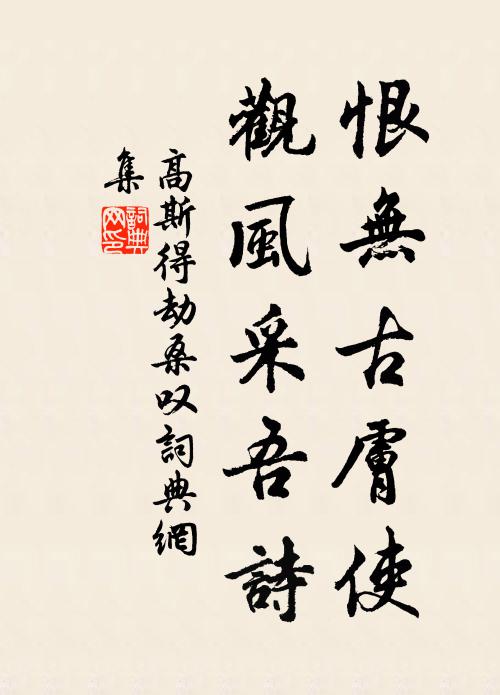 恨無古膚使
觀風采吾詩
高斯得劫桑叹詞典網
集
詞典网印